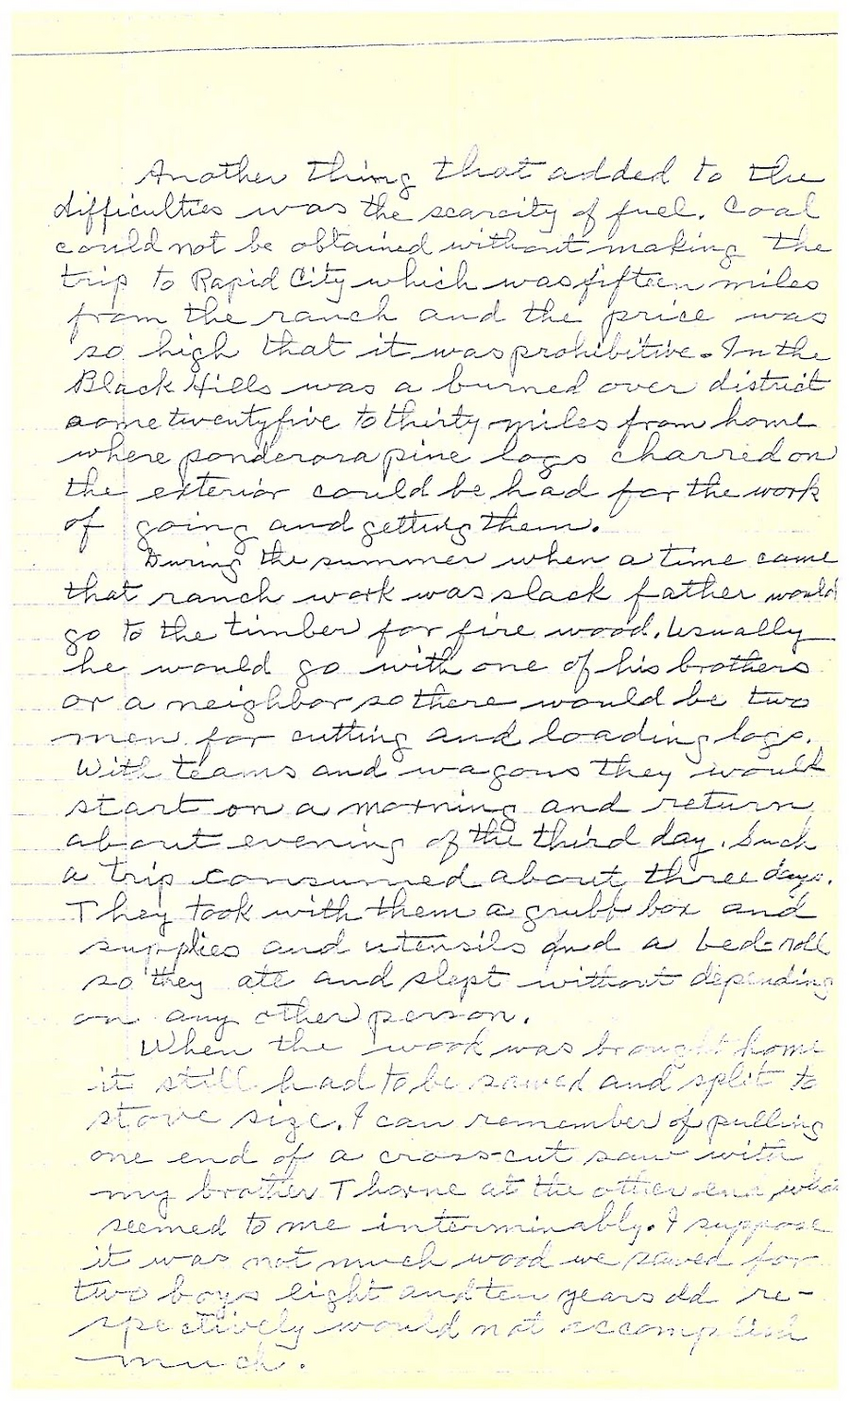 Another thing that added to the
difficulties was the scarcity of fuel. Coal
could not be obtained without making the
trip to Rapid City which was fifteen miles
from the ranch and the price was
so high that it was prohibitive. In the
Black Hills was a burned over district
some twentyfive to thirty miles from home
where ponderosa pine logs charred on
the exterior could be had for the work
of going and getting them.
During the summer when a time came
that ranch work was slack father would
go to the timber for fire wood. Usually
he would go with one of his brothers
or a neighbor so there would be two
men for cutting and loading logs.
With teams and wagons they would
start on a morning and return
about evening of the third day. Such
a trip consumed about three days.
They took with them a grubb box and
supplies and utensils and a bed-roll
so they ate and slept without depending
on any other person.
When the wook was brought home
it still had to be sawed and split to
stove size. I can remember of pulling
one end of a cross-cut saw with
my brother Thorne at the other end, what
seemed to me interminably. I suppose
it was not much wood we sawed for
two boys eight and ten years old re-
spectively would not accomplish
much.